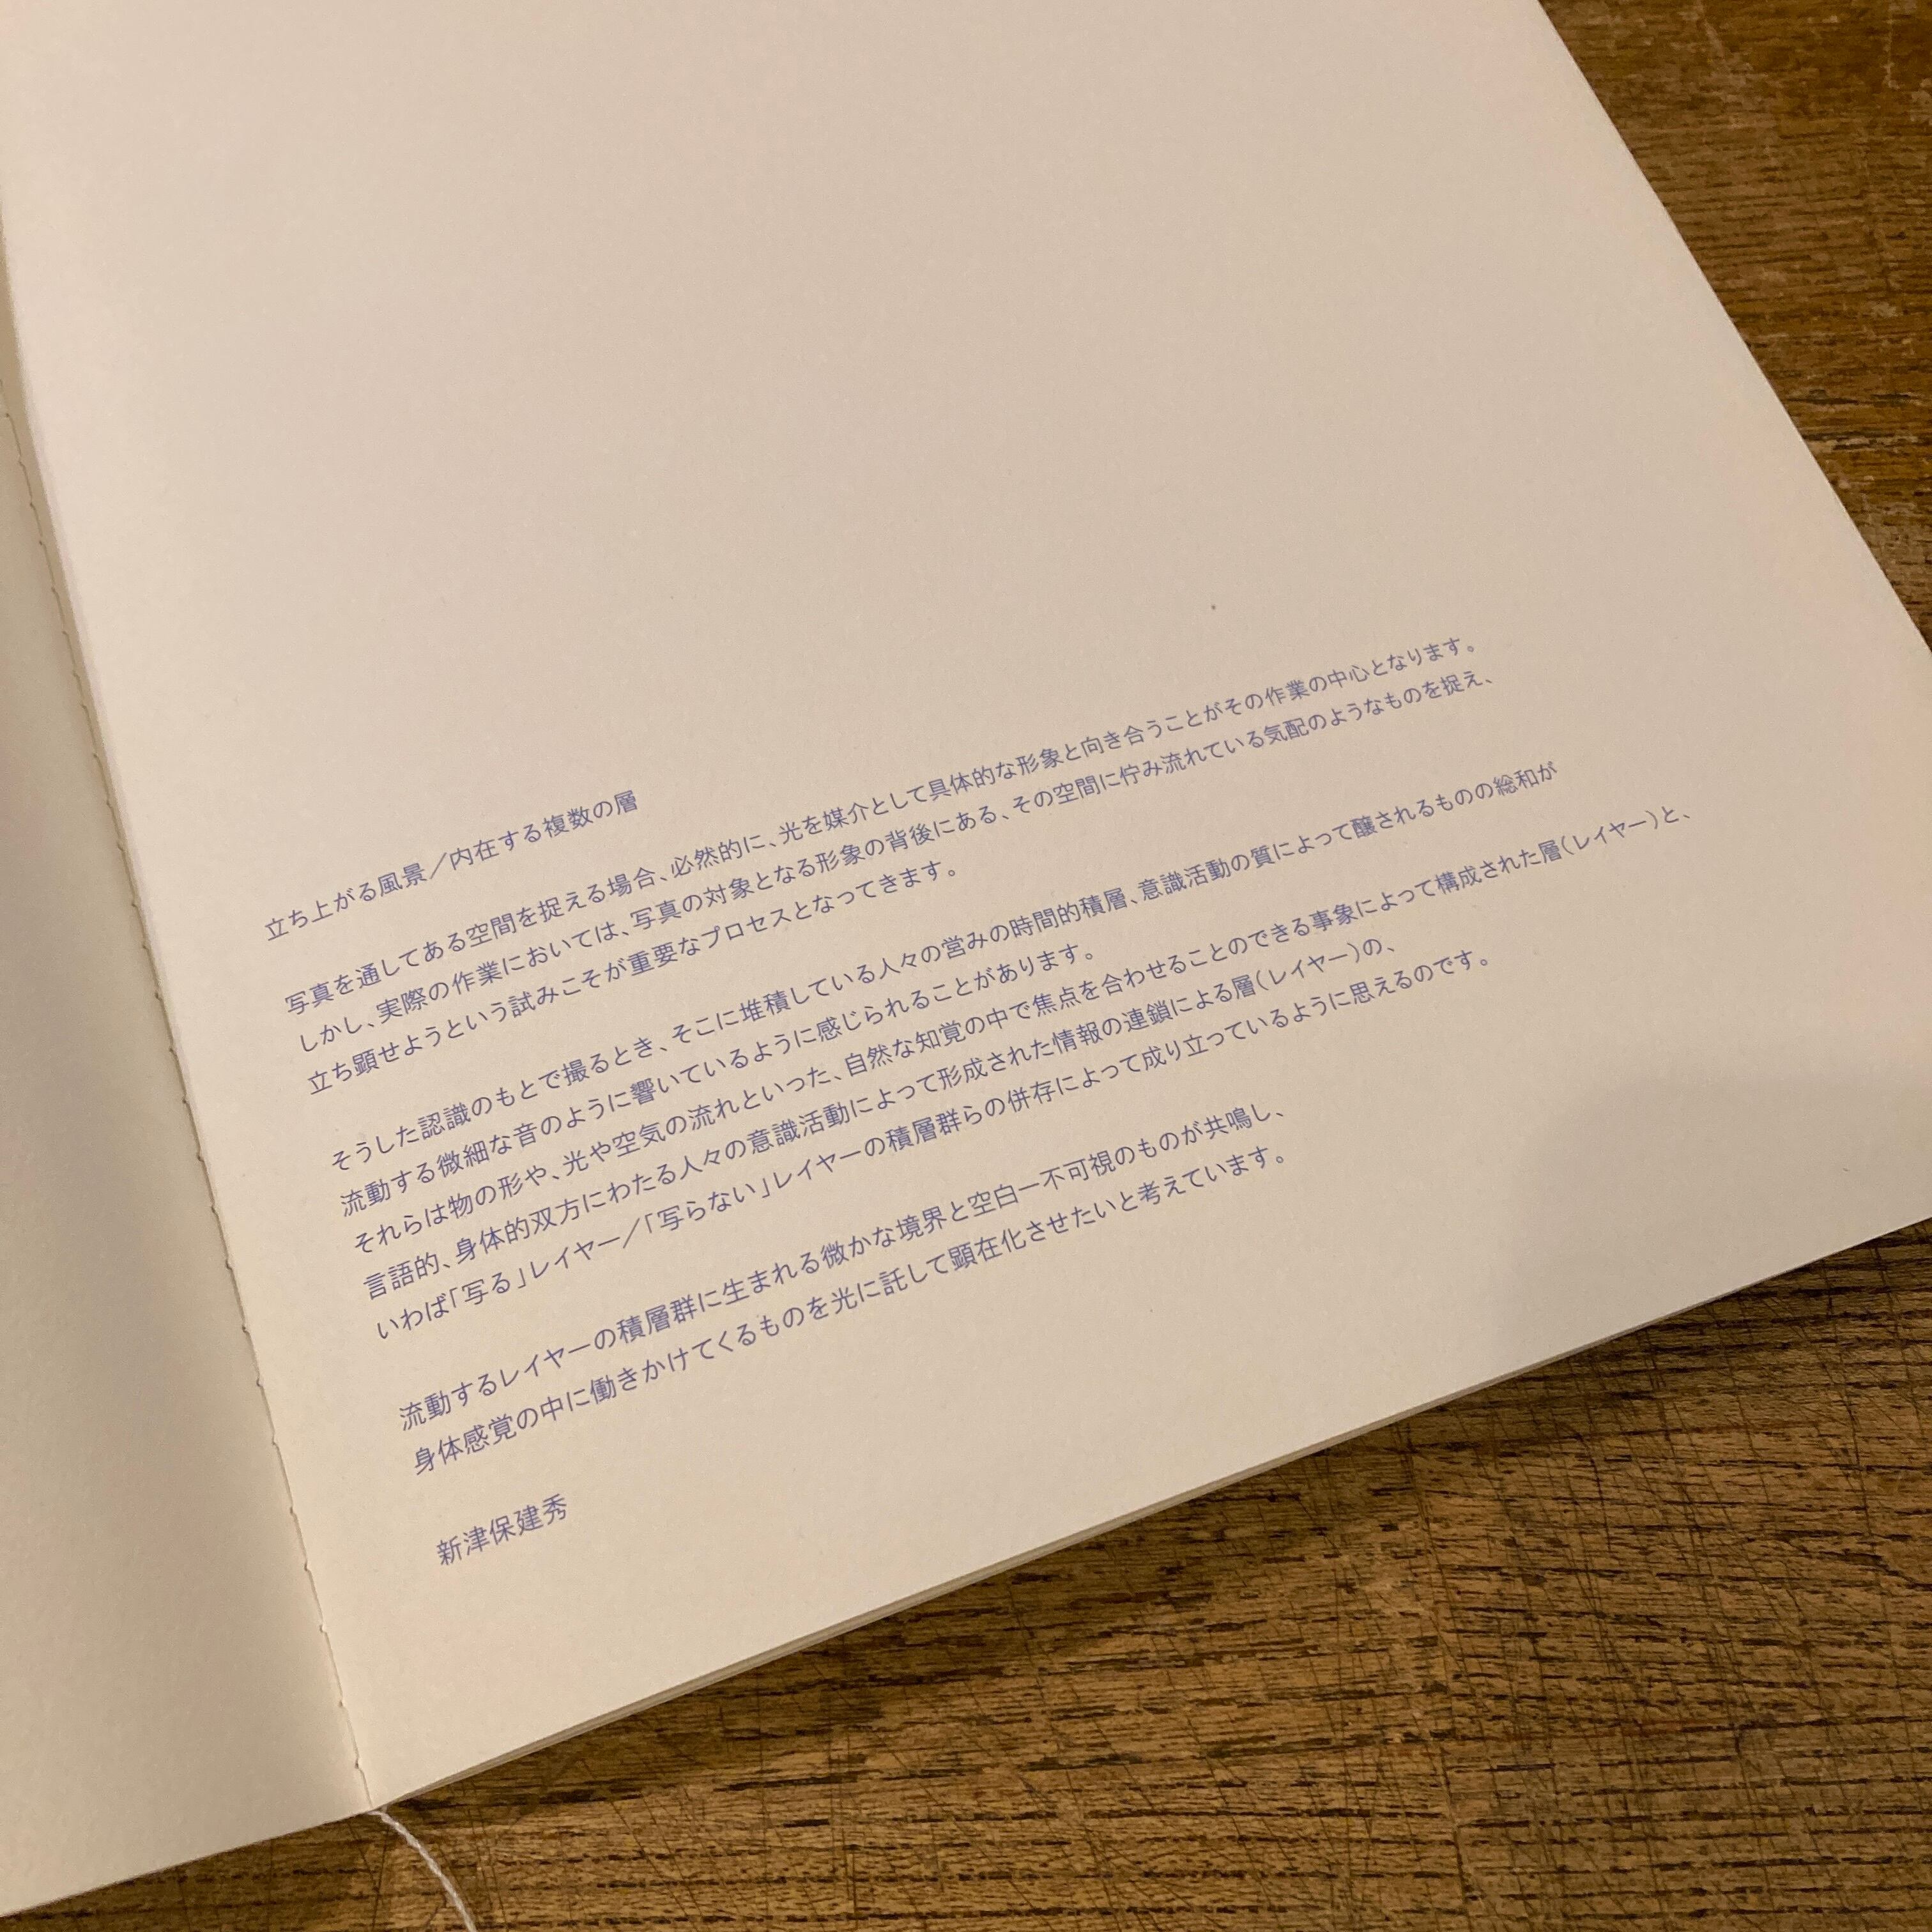 立ち上がる風景／内在する複数の層
写真を通してある空間を捉える場合、必然的に、光を媒介として具体的な形象と向き合うことがその作業の中心となります。
しかし、実際の作業においては、写真の対象となる形象の背後にある、その空間に佇み流れている気配のようなものを捉え、
立ち顕せようという試みこそが重要なプロセスとなってきます。
そうした認識のもとで撮るとき、そこに堆積している人々の営みの時間的積層、意識活動の質によって醸されるものの総和が
流動する微細な音のように響いているように感じられることがあります。
それらは物の形や、光や空気の流れといった、自然な知覚の中で焦点を合わせることのできる事象によって構成された層（レイヤー）と、
言語的、身体的双方にわたる人々の意識活動によって形成された情報の連鎖による層（レイヤー）の、
いわば「写る」レイヤー／「写らない」レイヤーの積層群らの併存によって成り立っているように思えるのです。
流動するレイヤーの積層群に生まれる微かな境界と空白ー不可視のものが共鳴し、
身体感覚の中に働きかけてくるものを光に託して顕在化させたいと考えています。
新津保建秀